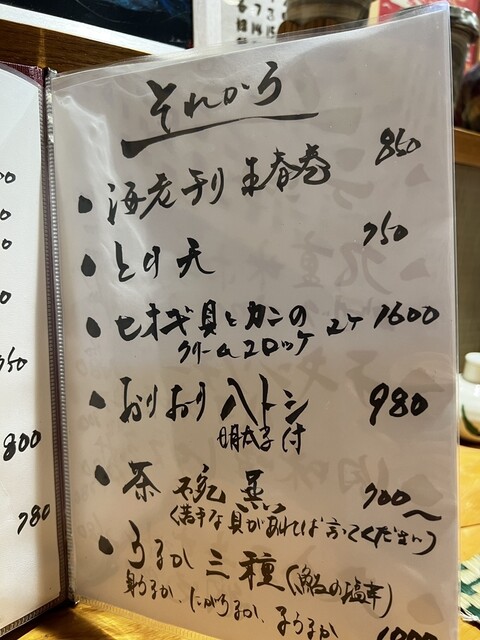 それから
・海老チリ生春巻 850
・とり天 750
・ヒオギ貝とカニの 2ケ 1600
クリームコロッケ
・おりおりハトシ 980
明太子付
・茶碗蒸 700〜
(苦手な具があれば言ってください)
・うるか三種(鮎の塩辛)
身うるか、にがうるか、子うるか
50
800
780